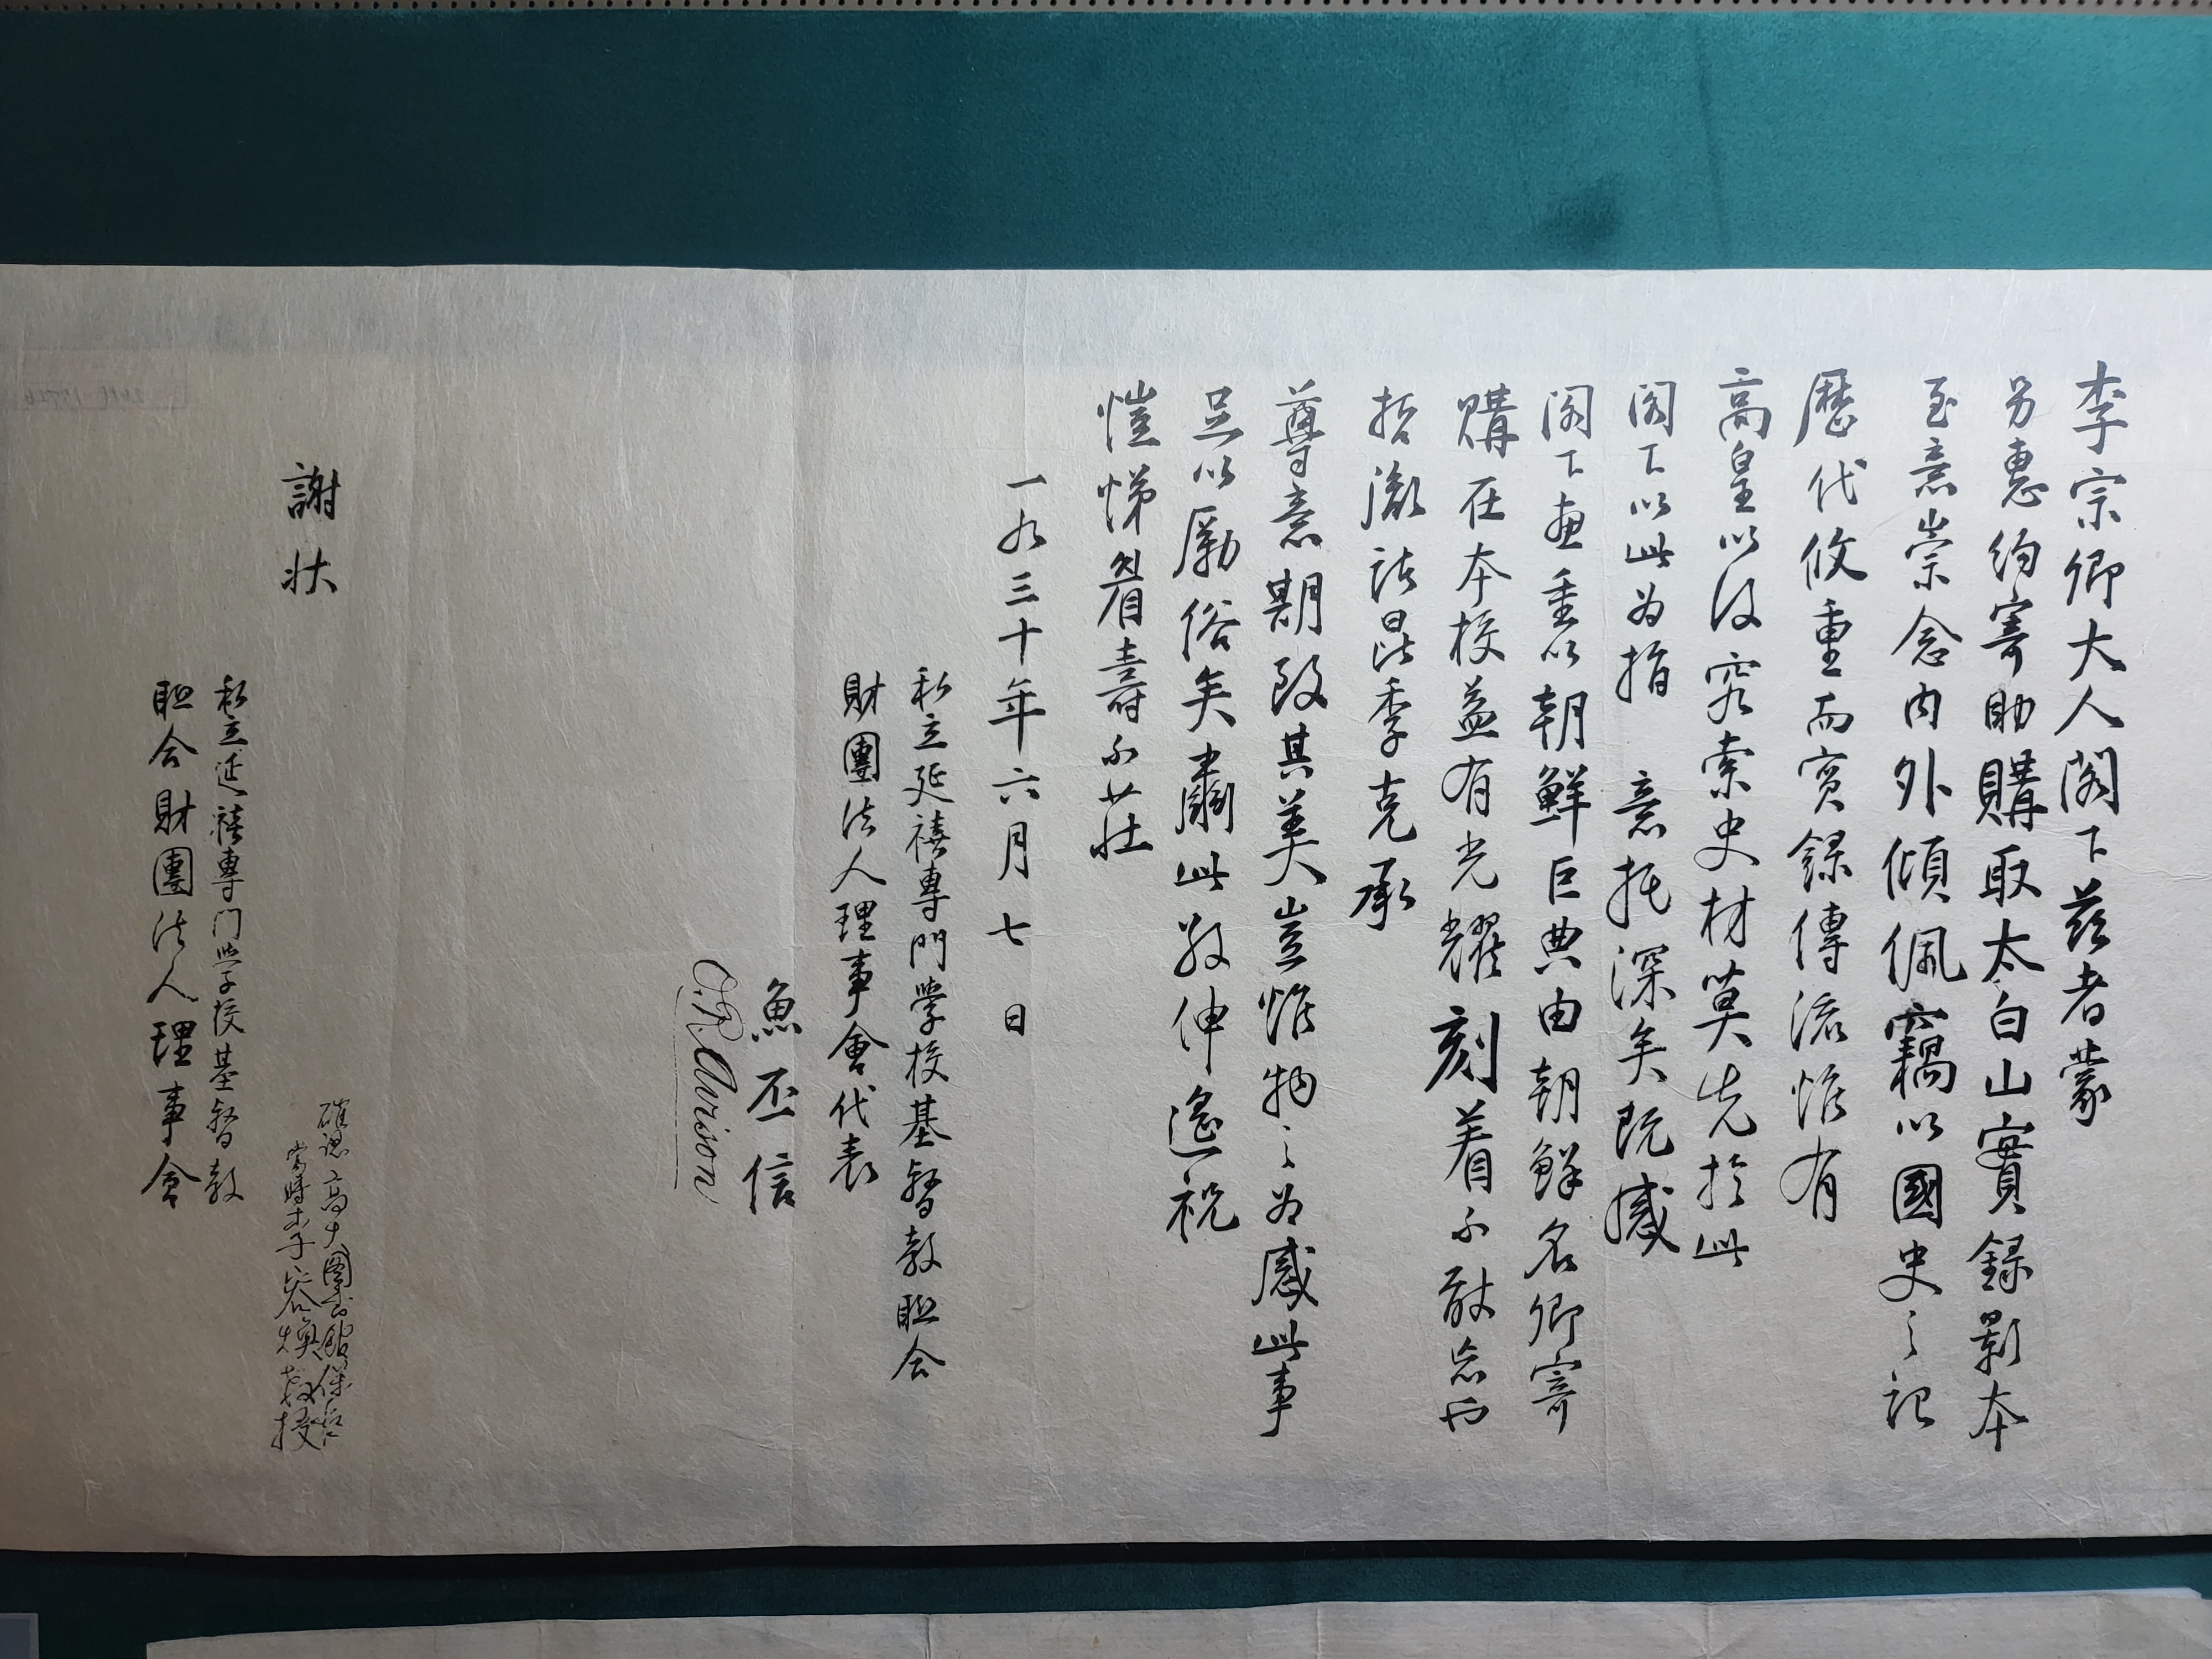 李宗卿大人閣下茲者蒙
另惠約寄助購取太白山實錄影本
至意崇念內外傾佩竊以國史之記
歷代攸重而實錄傳流惟有
高皇以後究索史材莫先於此
閣下以此为指 意托深矣既感
閣下
重以朝鮮巨典由朝鮮名卿寄
購在本校益有光耀刻着不敢忘而
哲胤諸昆季克承
尊意期致其美豈惟物之为感此事
足以勵俗矣肅此敬伸遙祝
愷悌眉壽不莊
一九三十年六月七日
私立延禧專門學校基督教联合
財團法人理事會代表
魚丕信
O.R. Avison
謝狀
確認 高大圖書館
當時 李
教授
私立延禧專门學校基督教
联合財團法人理事会